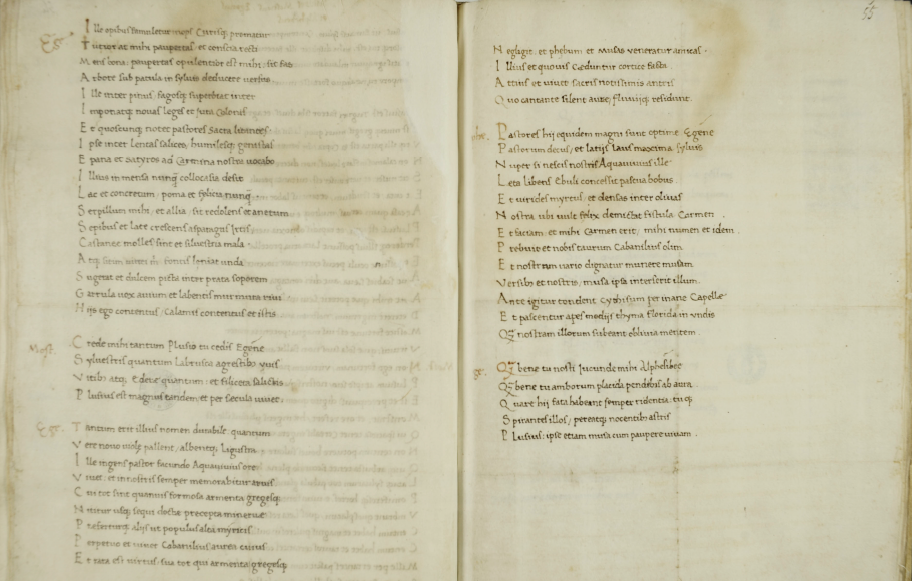 Ille opibus famuletur inops Curisq; prematur
Tutior at mihi paupertas et conscia recti
Mens bona: paupertas opulentior est mihi: sit fas
Arbore sub patula in sylvis deducere versus
Ille inter pinus fagosq; superbiat inter
Imponatq; novas leges et iura Colonis
Et quoscunq; notet pastores sacra litantes
Ipse inter lentas salices, humilesq; genistas
Epana et satyros ad Carmina nostra vocabo
Illius in mensa nunq̃ collocasia desit
Lac et concretum: poma et sylvestria nunq̃
Serpillum mihi: et allia: sit redolens et anetum
Sepibus et late crescens asparagus
Castaneæ molles sint et silvestria mala
Atq; sitim fontis leniat unda
Sugerat et dulcem picta inter prata soporem
Garrula vox avium et labentis murmura rivi
Hijs ego contentus / Calamis contentus et istis
Most. Crede mihi tantum Plusio tu cedis Egene
Sylvestris quantum Labrusca agrestibꝰ uvis
Vitibꝰ atq; ederæ quantum: et silicera
Plusius est magnus tandem et per sæcula vivet
Ege. Tantum erit illius nomen durabile quantum
Vere novo violę pallent / albentq; Ligustra
Ille ingens pastor facundo Aquavivus ore
Vivet: et in nostris semper memorabitur arvis
Cui tot sint quamvis formosa armenta gregesq;
Nititur usq; sequi doctæ precepta minervæ
Preferturq; alijs ut populus alta myricis
Perpetuo et vivet Cabanilius aurea
Et rata est virtus: sua tot qui armenta gregesq;
55
Negligit: et phębum et Musas veneratur amicas
Illius et quovis Cæduntur cortice fastra
Attius et vivet sacris notissimis antris
Quo cantante silent auræ, fluvijq; residunt
Pastores hij equidem magni sunt optime Egene
Pastorum decus / et latijs laus maxima sylvis
Nuper si nescis nostris Aquavivus ille
Leta libens Ebuli concessit pascua bobus
Et virides myrtus: et densas inter olivas
Nostra ubi vult felix demiscat fistula Carmen
Et faciam: et mihi Carmen erit / mihi numen et idem
Prebuit et nobis taurum Cabanilius olim
Et nostram vario dignatur munere musam
Versibꝰ et nostris / musa ipsa interserit illum
Ante igitur tondent Cythisum per inane Capellæ
Et pascentur apes medijs thyma florida in undis
Qꝫ nostram illorum subeant oblivia mentem
ge. Qꝫ bene tu nosti Jucunde mihi Alphesibee
Qꝫ bene tu amborum placida pendebis ab aura
Quare hij fata habeant semper ridentia: tuq;
Spirantes illos / pereatq; nocentibꝰ astris
Plusius: ipse etiam musa cum paupere vivam